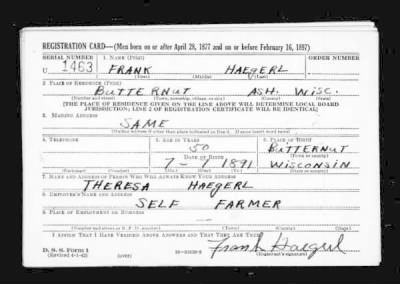 REGISTRATION CARD—(Men born on or after April 28, 1877 and on or before February 16, 1897)
SERIAL NUMBER 1. NAME (Print) ORDER NUMBER
U 1463 FRANK HAEGERL
(First) (Middle) (Last)
2. PLACE OF RESIDENCE (Print)
BUTTERNUT ASH. WISC.
(Number and street) (Town, township, village, or city) (County) (State)
[THE PLACE OF RESIDENCE GIVEN ON THE LINE ABOVE WILL DETERMINE LOCAL BOARD
JURISDICTION; LINE 2 OF REGISTRATION CERTIFICATE WILL BE IDENTICAL]
3. MAILING ADDRESS
SAME
[Mailing address if other than place indicated on line 2. If same insert word same]
4. TELEPHONE 5. AGE IN YEARS 6. PLACE OF BIRTH
50 BUTTERNUT
DATE OF BIRTH (Town or county)
7-7 1891 WISCONSIN
(Exchange) (Number) (Mo.) (Day) (Yr.) (State or country)
7. NAME AND ADDRESS OF PERSON WHO WILL ALWAYS KNOW YOUR ADDRESS
THERESA HAEGERL
8. EMPLOYER'S NAME AND ADDRESS
SELF FARMER
9. PLACE OF EMPLOYMENT OR BUSINESS
(Number and street or R. F. D. number) (Town) (County) (State)
I AFFIRM THAT I HAVE VERIFIED ABOVE ANSWERS AND THAT THEY ARE TRUE.
D. S. S. Form 1 Frank Haegerl
(Revised 4-1-42) (over) (Registrant's signature)